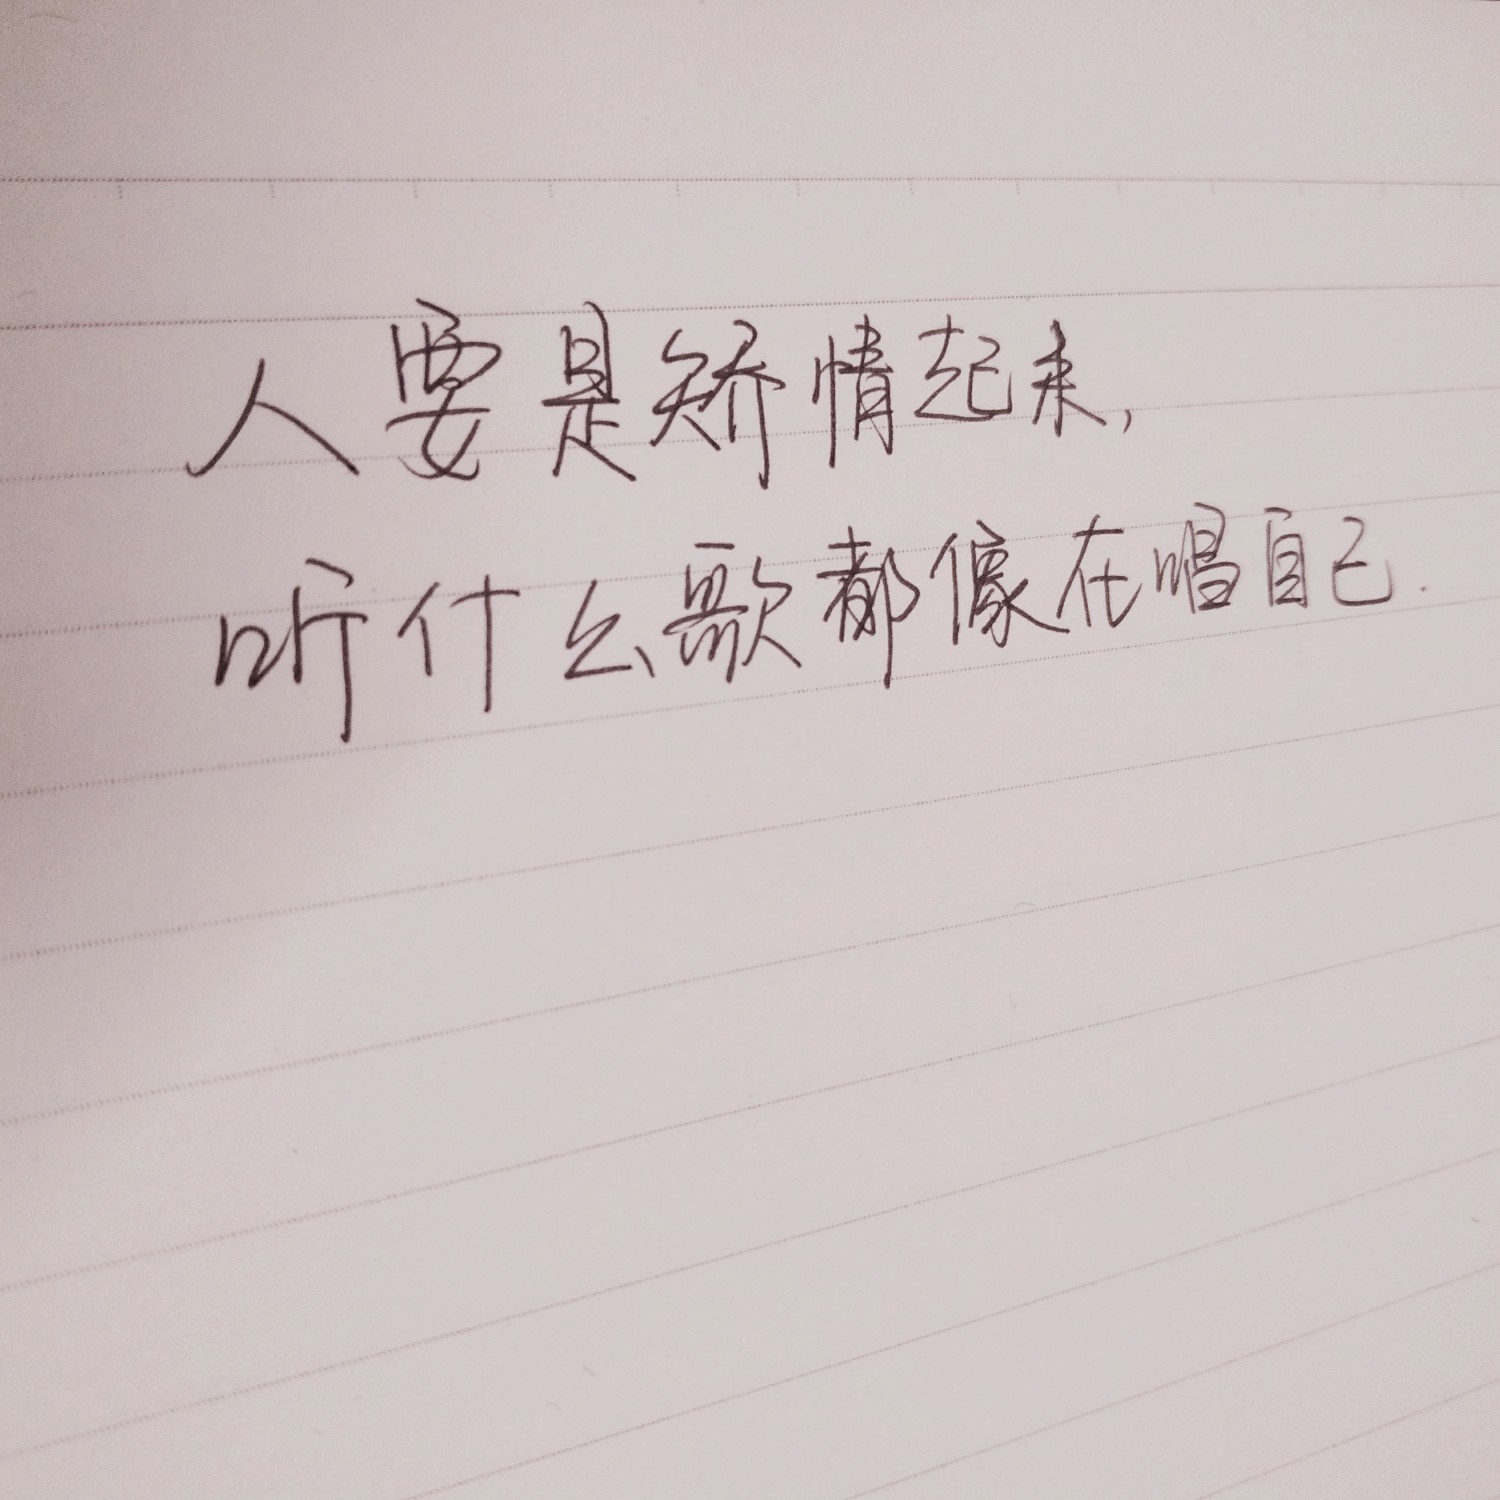 人要是矫情起来,
听什么歌都像在唱自己.